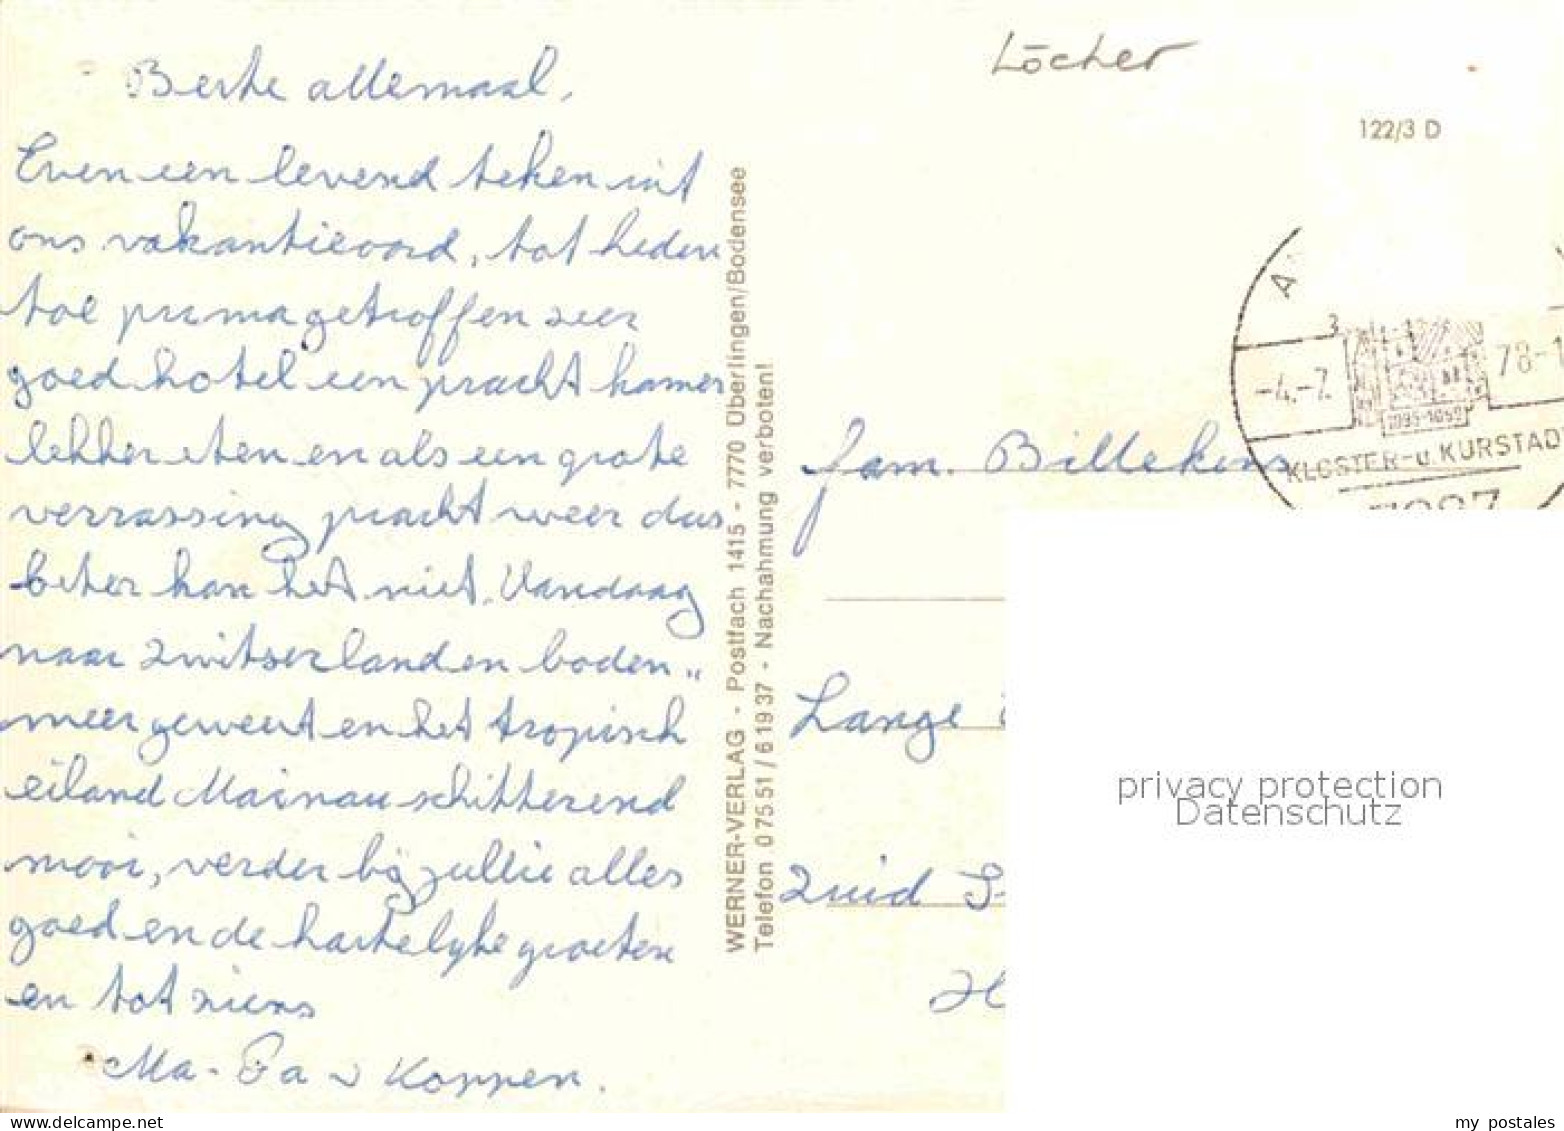 Beste allemaal,
Even een levend teken uit
ons vakantieoord, tot heden
toe prima getroffen zeer
goed hotel een pracht kamer
lekker eten en als een grote
verrassing pracht weer dus
beter kan het niet. Vandaag
naar Zwitserland en boden"
meer geweest en het tropisch
eiland Mainau schitterend
mooi, verder bij jullie alles
goed en de hartelijke groeten
en tot ziens
Ma - Pa v Koppen.
WERNER-VERLAG - Postfach 1415 - 7770 Überlingen/Bodensee
Telefon 0 75 51 / 6 19 37 - Nachahmung verboten!
Löcher
122/3 D
-4.-7. 78-1
KLOSTER-u. KURSTAD
fam. Billekens
Lange
Zuid
privacy protection
Datenschutz
www.delcampe.net
my_postales